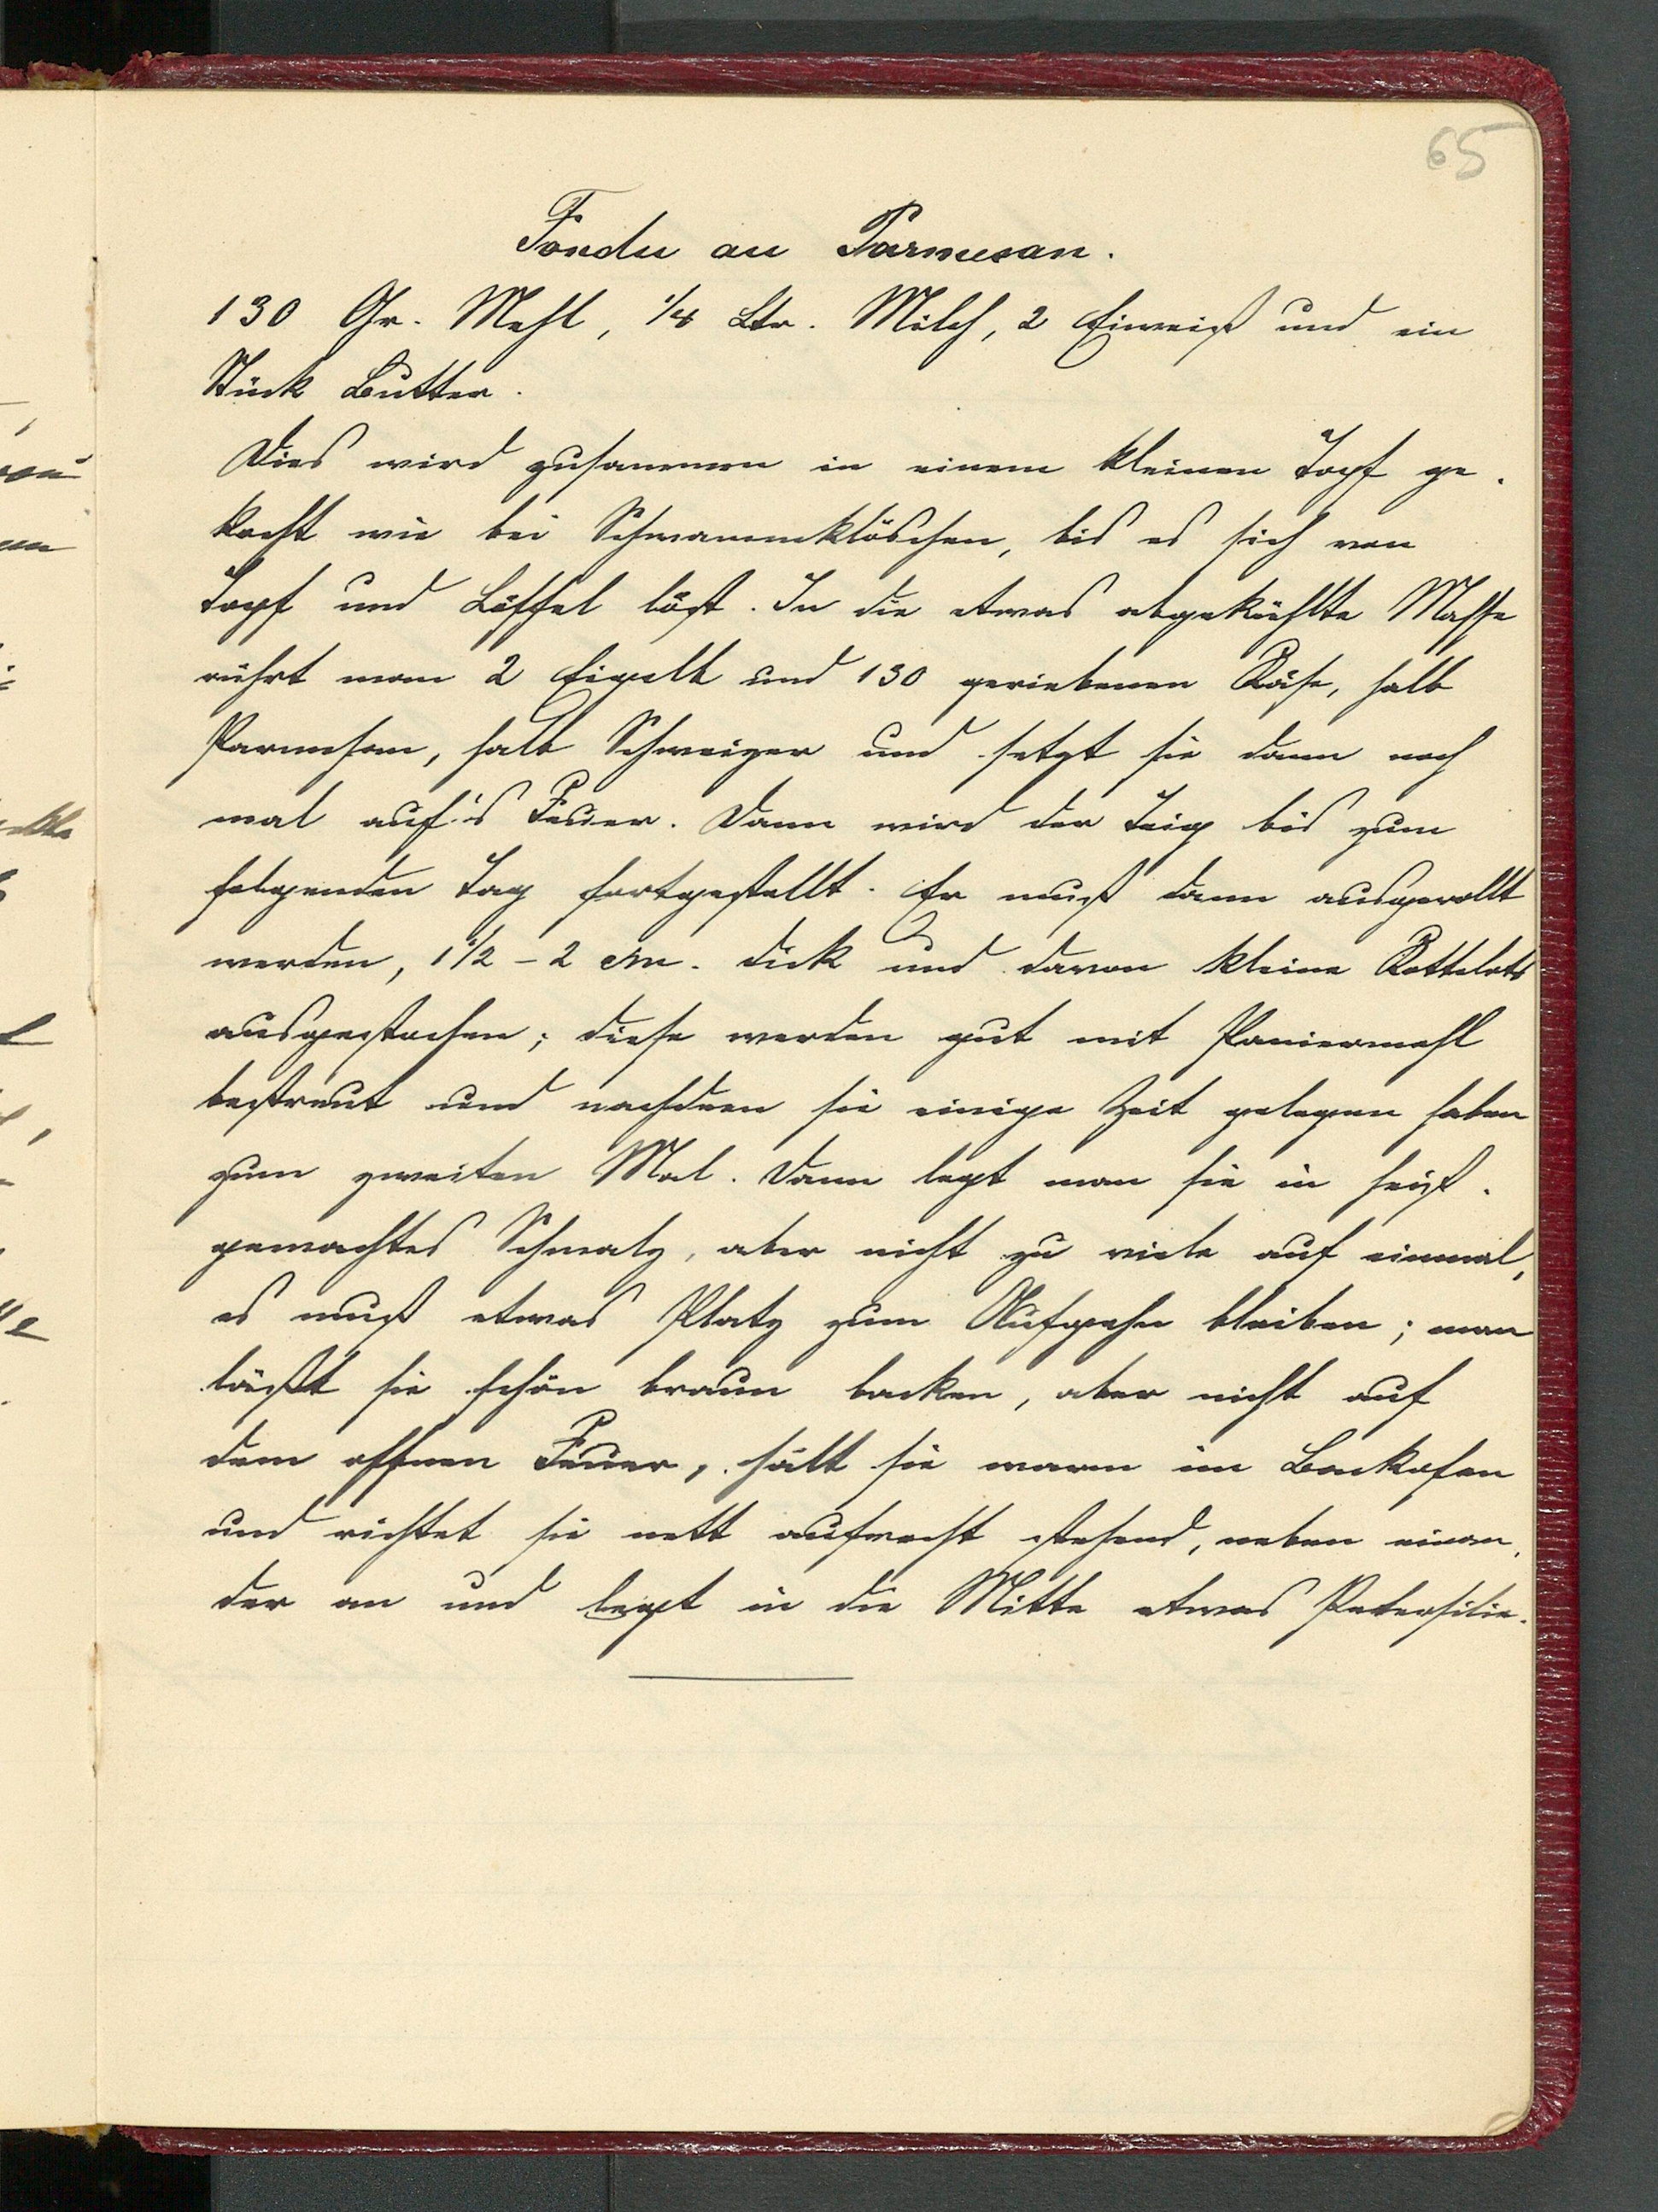 65
Fondu au Parmesan.
130 Gr. Mehl, 1/4 Ltr. Milch, 2 Eiweiß und ein
Stück Butter.
Dies wird zusammen in einem kleinen Topf ge-
kocht wie bei Schwammklöschen, bis es sich von
Topf und Löffel löst. In die etwas abgekühlte Masse
rührt man 2 Eigelb und 130 geriebenen Käse, halb
Parmesan, halb Schweizer und setzt sie dann noch
mal auf's Feuer. Dann wird der Teig bis zum
folgenden Tag fortgestellt. Er muß dann ausgerollt
werden, 1 1/2 - 2 cm. dick und davon kleine Kottelets
ausgestochen; diese werden gut mit Paniermehl
bestreut und nachdem sie einige Zeit gelegen haben
zum zweiten Mal. Dann legt man sie in heiß-
gemachtes Schmalz, aber nicht zu viele auf einmal,
es muß etwas Platz zum Aufgehn bleiben; man
läßt sie schön braun backen, aber nicht auf
dem offnen Feuer, hält sie warm im Backofen
und richtet sie nett aufrecht stehend, neben einan-
der an und legt in die Mitte etwas Petersilie.